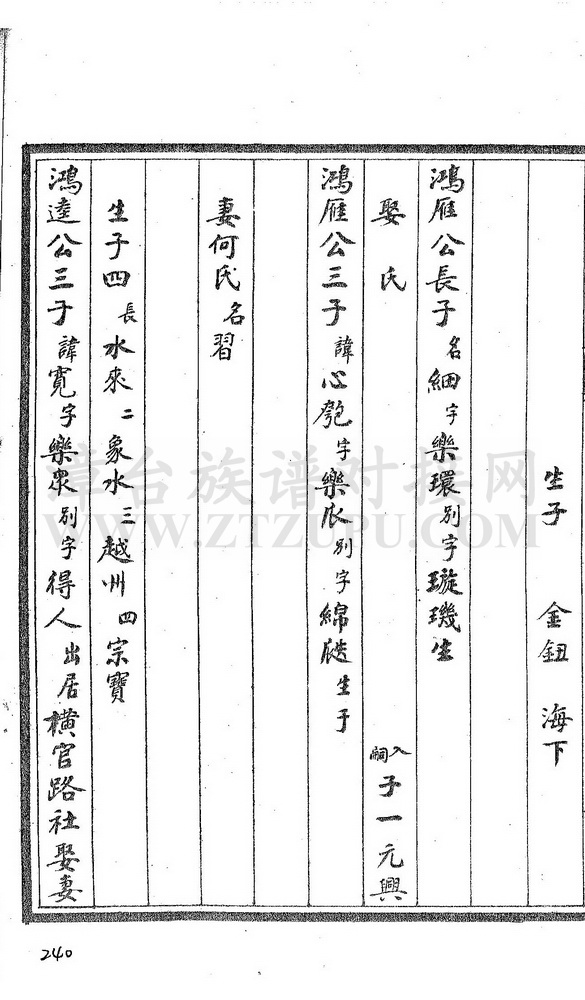 生子 金鈕 海下
鴻雁公長子名細字樂環别字璇璣生
娶氏 入嗣子一元興
鴻雁公三子諱心匏字樂 别字綿 生于
妻何氏名習
生子四長水來二象水三越州四宗寶
鴻逵公三子諱寬字樂眾别字得人出居橫官路社娶妻
漳台族谱对接网
WWW.ZTZUPU.COM
240